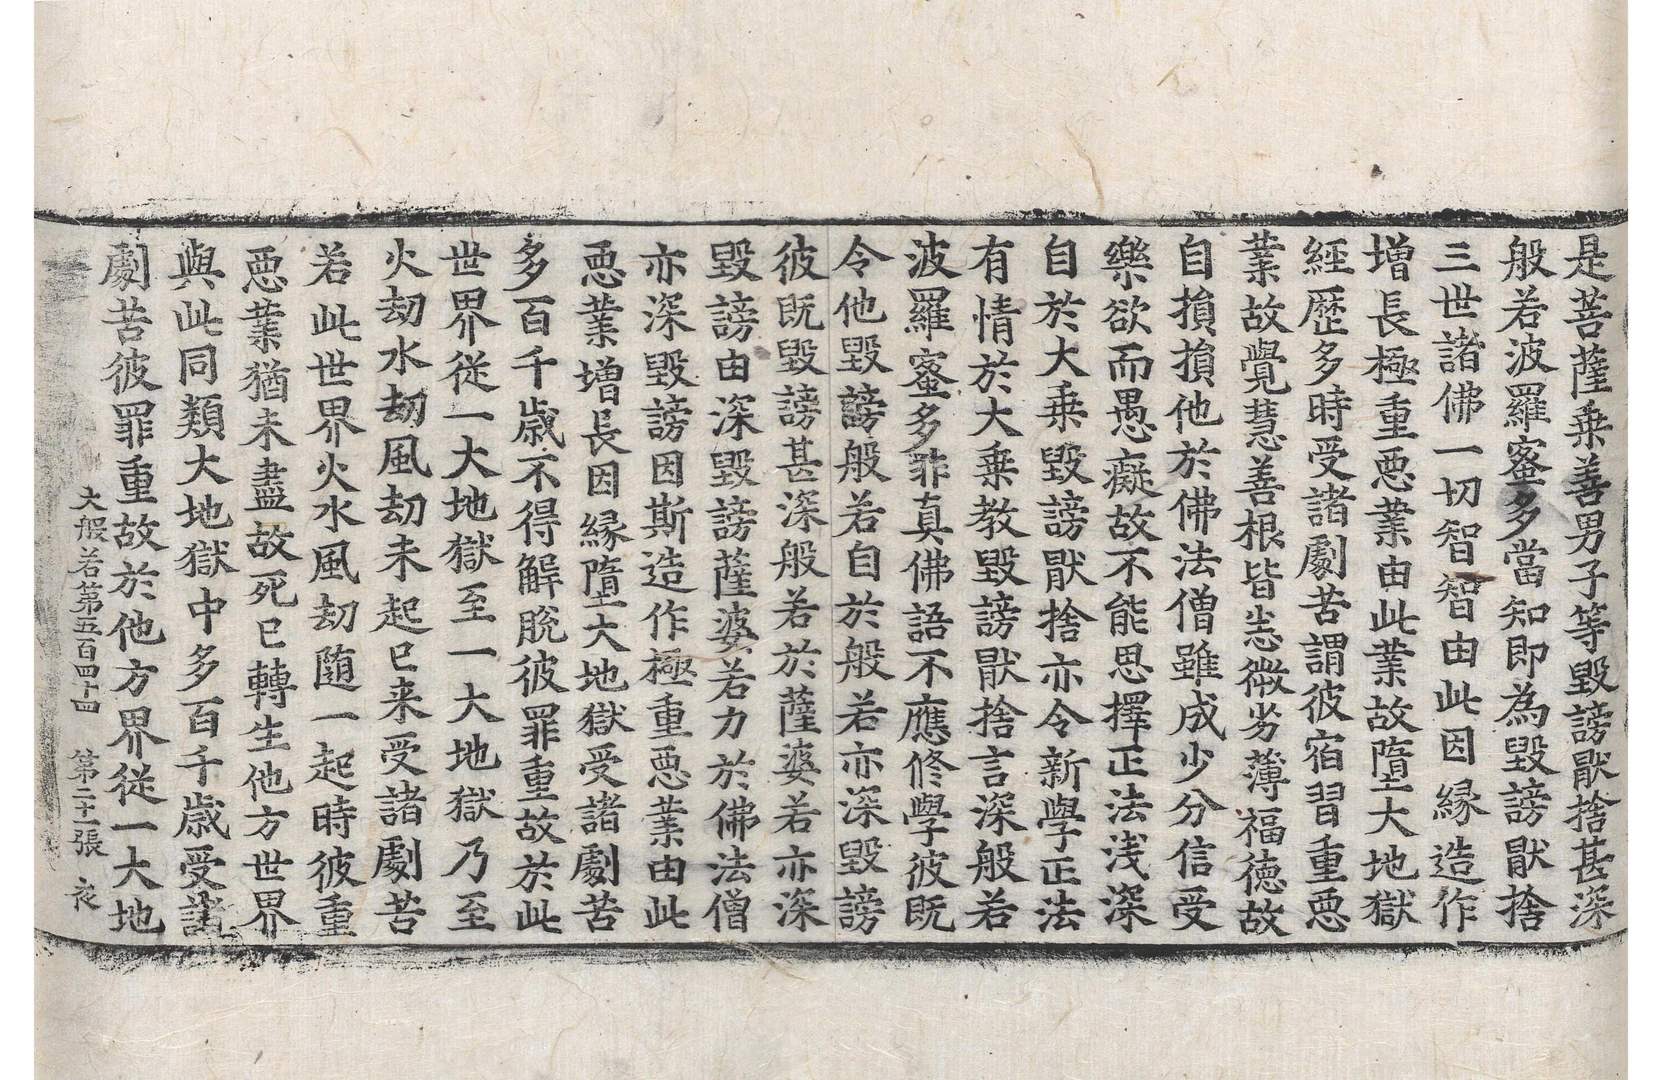 是菩薩乗善男子等毀謗猒捨甚深
般若波羅蜜多當知即為毀謗猒捨
三世諸佛一切智智由此因縁造作
增長極重悪業由此業故墮大地獄
經歷多時受諸劇苦謂彼宿習重悪
業故覺慧善根皆悉微劣薄福徳故
自損損他於佛法僧雖成少分信受
樂欲而愚癡故不能思擇正法浅深
自於大乗毀謗猒捨亦令新學正法
有情於大乗教毀謗猒捨言深般若
波羅蜜多非真佛語不應修學彼既
令他毀謗般若自於般若亦深毀謗
彼既毀謗甚深般若於薩婆若亦深
毀謗由深毀謗薩婆若力於佛法僧
亦深毀謗因斯造作極重悪業由此
悪業增長因縁墮大地獄受諸劇苦
多百千歳不得解脫彼罪重故於此
世界從一大地獄至一大地獄乃至
火劫水劫風劫未起已来受諸劇苦
若此世界火水風劫随一起時彼重
悪業猶未盡故死已轉生他方世界
與此同類大地獄中多百千歳受諸
劇苦彼罪重故於他方界從一大地
大般若第五百四十四 第二十一張 衣